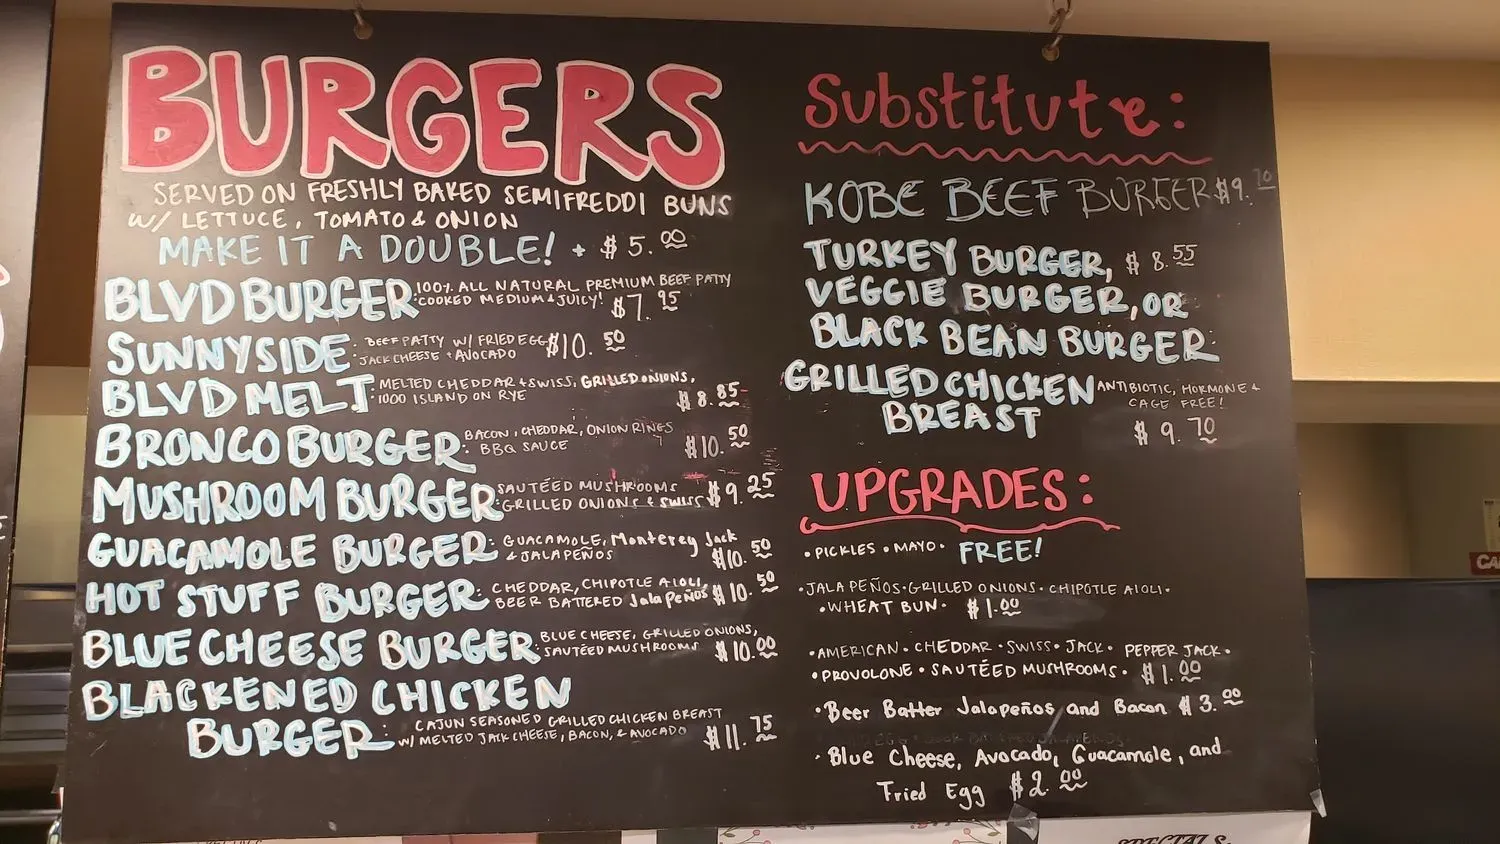 BURGERS
SERVED ON FRESHLY BAKED SEMIFREDDI BUNS
W/ LETTUCE, TOMATO & ONION
MAKE IT A DOUBLE! + $5.00
BLVD BURGER: 100% ALL NATURAL PREMIUM BEEF PATTY
COOKED MEDIUM & JUICY! $7.95
SUNNYSIDE: BEEF PATTY W/ FRIED EGG $10.50
JACK CHEESE + AVOCADO
BLVD MELT: MELTED CHEDDAR + SWISS, GRILLED ONIONS,
1000 ISLAND ON RYE $8.85
BRONCO BURGER: BACON, CHEDDAR, ONION RINGS
BBQ SAUCE $10.50
MUSHROOM BURGER: SAUTÉED MUSHROOMS
GRILLED ONIONS & SWISS $9.25
GUACAMOLE BURGER: GUACAMOLE, Monterey Jack
& JALAPEÑOS $10.50
HOT STUFF BURGER: CHEDDAR, CHIPOTLE AIOLI,
BEER BATTERED JalaPeños $10.50
BLUE CHEESE BURGER: BLUE CHEESE, GRILLED ONIONS,
SAUTÉED MUSHROOMS $10.00
BLACKENED CHICKEN
BURGER: CAJUN SEASONED GRILLED CHICKEN BREAST
W/ MELTED JACK CHEESE, BACON, & AVOCADO $11.75
Substitute:
KOBE BEEF BURGER $9.70
TURKEY BURGER, $8.55
VEGGIE BURGER, OR
BLACK BEAN BURGER:
GRILLED CHICKEN ANTIBIOTIC, HORMONE +
BREAST CAGE FREE!
$9.70
UPGRADES:
• PICKLES • MAYO • FREE!
• JALAPEÑOS • GRILLED ONIONS • CHIPOTLE AIOLI •
• WHEAT BUN • $1.00
• AMERICAN • CHEDDAR • SWISS • JACK • PEPPER JACK •
• PROVOLONE • SAUTÉED MUSHROOMS • $1.00
• Beer Batter Jalapeños and Bacon $3.00
• Blue Cheese, Avocado, Guacamole, and
Fried Egg $2.00
SPECIALS